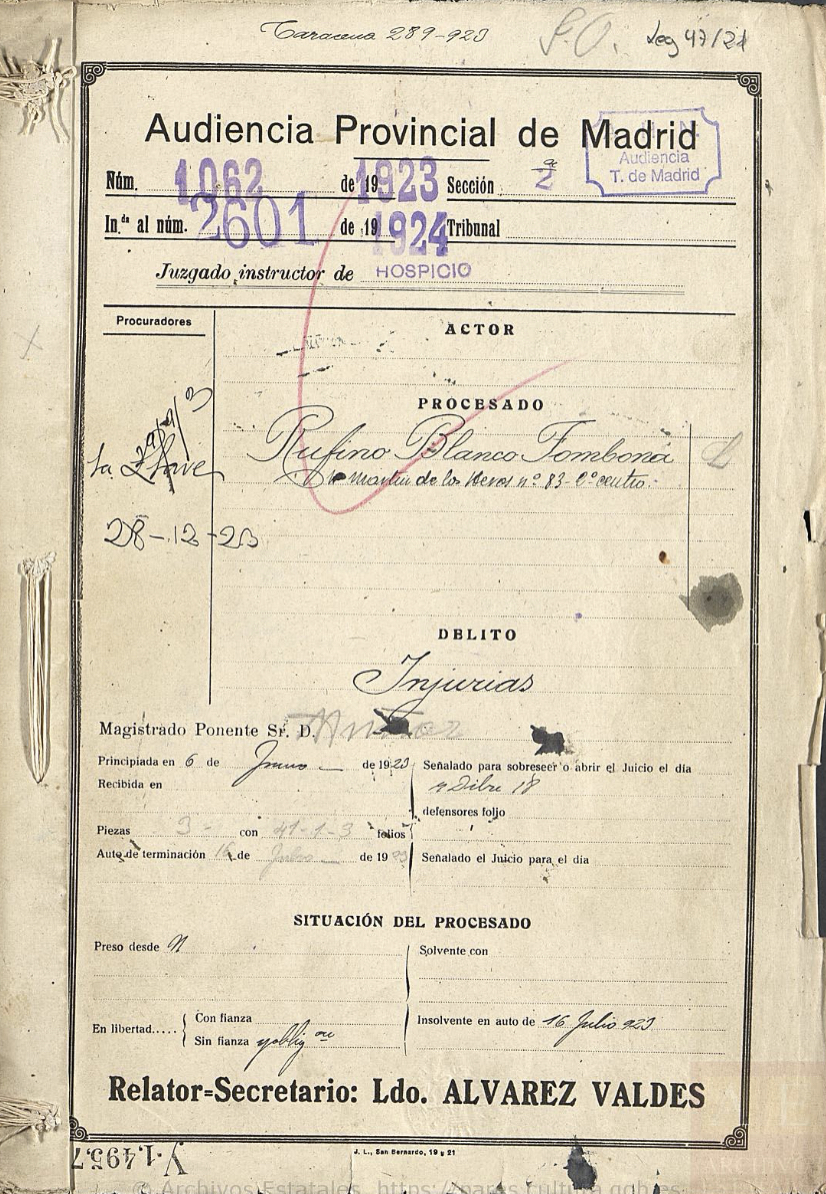 Taracena 289-923
S.O. Leg 47/21
Audiencia Provincial de Madrid
A. H. N.
Audiencia
T. de Madrid
Núm. 1062 de 1923 Sección 2ª
In.da al núm. 2601 de 1924 Tribunal
Juzgado instructor de HOSPICIO
Procuradores
La Llave
28-12-23
ACTOR
PROCESADO
Rufino Blanco Fombona
Martin de los Heros nº 83-2º centro.
DELITO
Injurias
Magistrado Ponente Sr. D.
Principiada en 6 de Junio de 1923
Recibida en
Piezas 3- con 41-1-3 folios
Auto de terminación 16 de Julio de 1923
Señalado para sobreseer o abrir el Juicio el día
9 Dibre 18
defensores folio
Señalado el Juicio para el día
SITUACIÓN DEL PROCESADO
Preso desde N
Solvente con
En libertad.....
Con fianza
Sin fianza y oblig on
Insolvente en auto de 16 Julio 923
Relator=Secretario: Ldo. ALVAREZ VALDES
J. L., San Bernardo, 19 y 21
y-1,4957
© Archivos Estatales, https://pares.cultura.gob.es